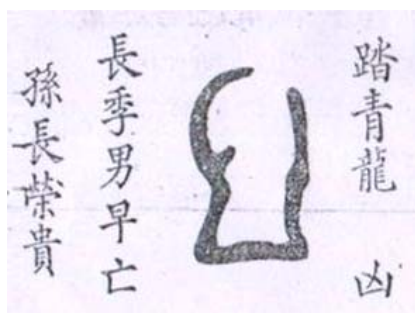 踏青龍 凶
長季男早亡
孫長榮貴